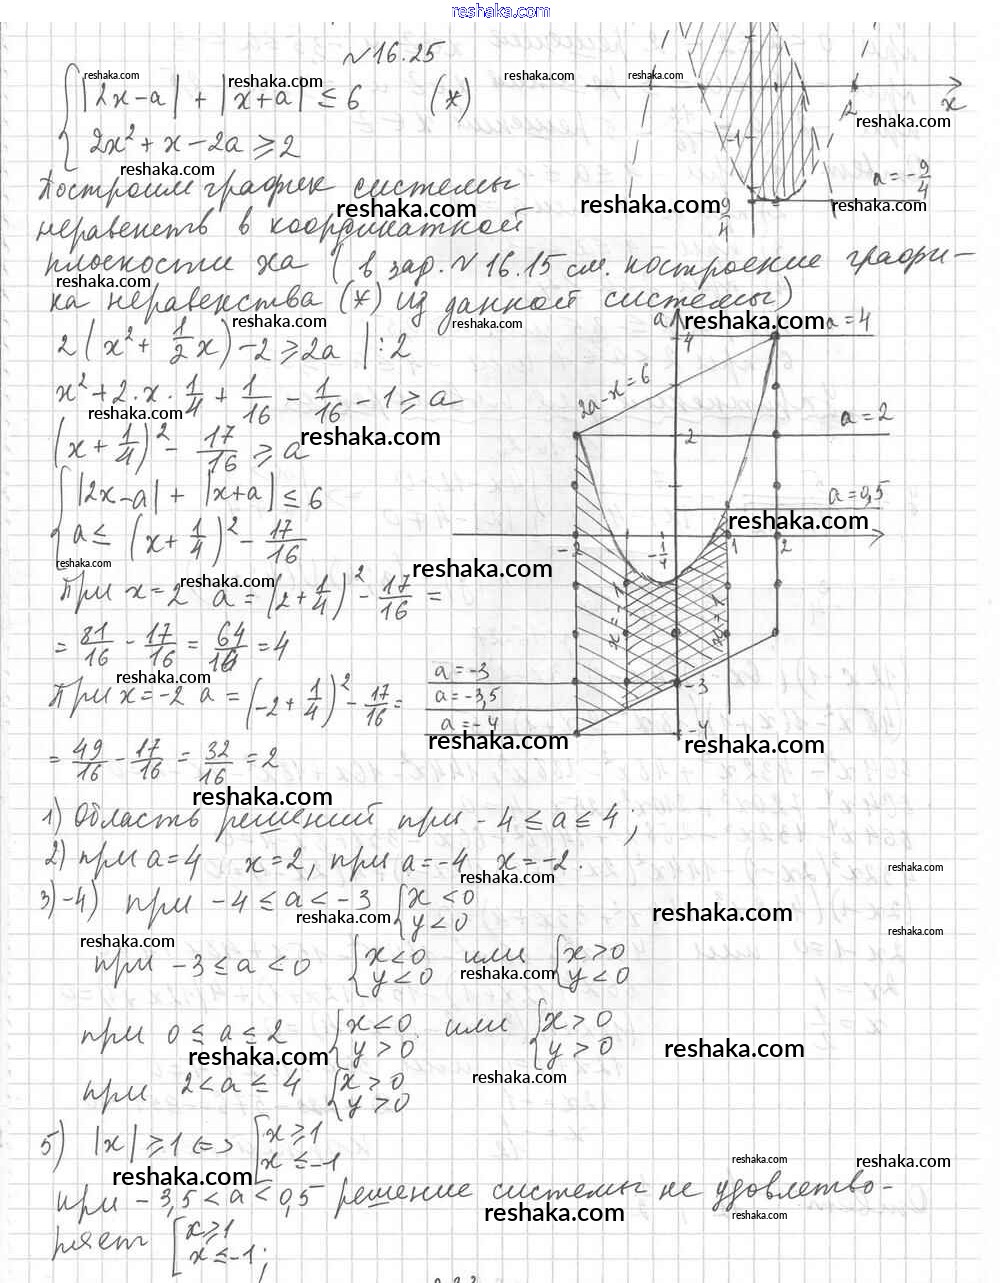 reshaka.com
№16.25
{ |2x-a| + |x+a| ≤ 6 (*)
2x² + x - 2a ≥ 2
Построим график системы
неравенств в координатной
плоскости xa (в зад. №16.15 см. построение графи-
ка неравенства (*) из данной системы)
2(x² + 1/2 x) - 2 ≥ 2a |:2
x² + 2·x·1/4 + 1/16 - 1/16 - 1 ≥ a
(x + 1/4)² - 17/16 ≥ a
{ |2x-a| + |x+a| ≤ 6
a ≤ (x + 1/4)² - 17/16
При x=2 a = (2 + 1/4)² - 17/16 =
= 81/16 - 17/16 = 64/16 = 4
При x=-2 a = (-2 + 1/4)² - 17/16 =
= 49/16 - 17/16 = 32/16 = 2
x
2
-1
a = -9/4
9/4
a
a=4
4
2a-x=6
a=2
2
a=0,5
-2
-1/4
1
2
x=-1
x=1
a=-3
-3
a=-3,5
a=-4
-4
1) Область решений при -4 ≤ a ≤ 4;
2) при a=4 x=2, при a=-4 x=-2.
3)-4) при -4 ≤ a < -3 { x<0
y<0
при -3 ≤ a < 0 { x<0 или { x>0
y<0 y<0
при 0 ≤ a ≤ 2 { x<0 или { x>0
y>0 y>0
при 2 < a ≤ 4 { x>0
y>0
5) |x| ≥ 1 <=> [ x ≥ 1
x ≤ -1
при -3,5 < a < 0,5 решение системы не удовлетво-
ряет [ x ≥ 1
x ≤ -1;